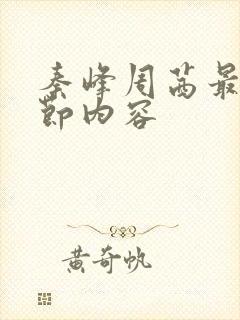 秦峰周茜最
节内容
黄奇帆